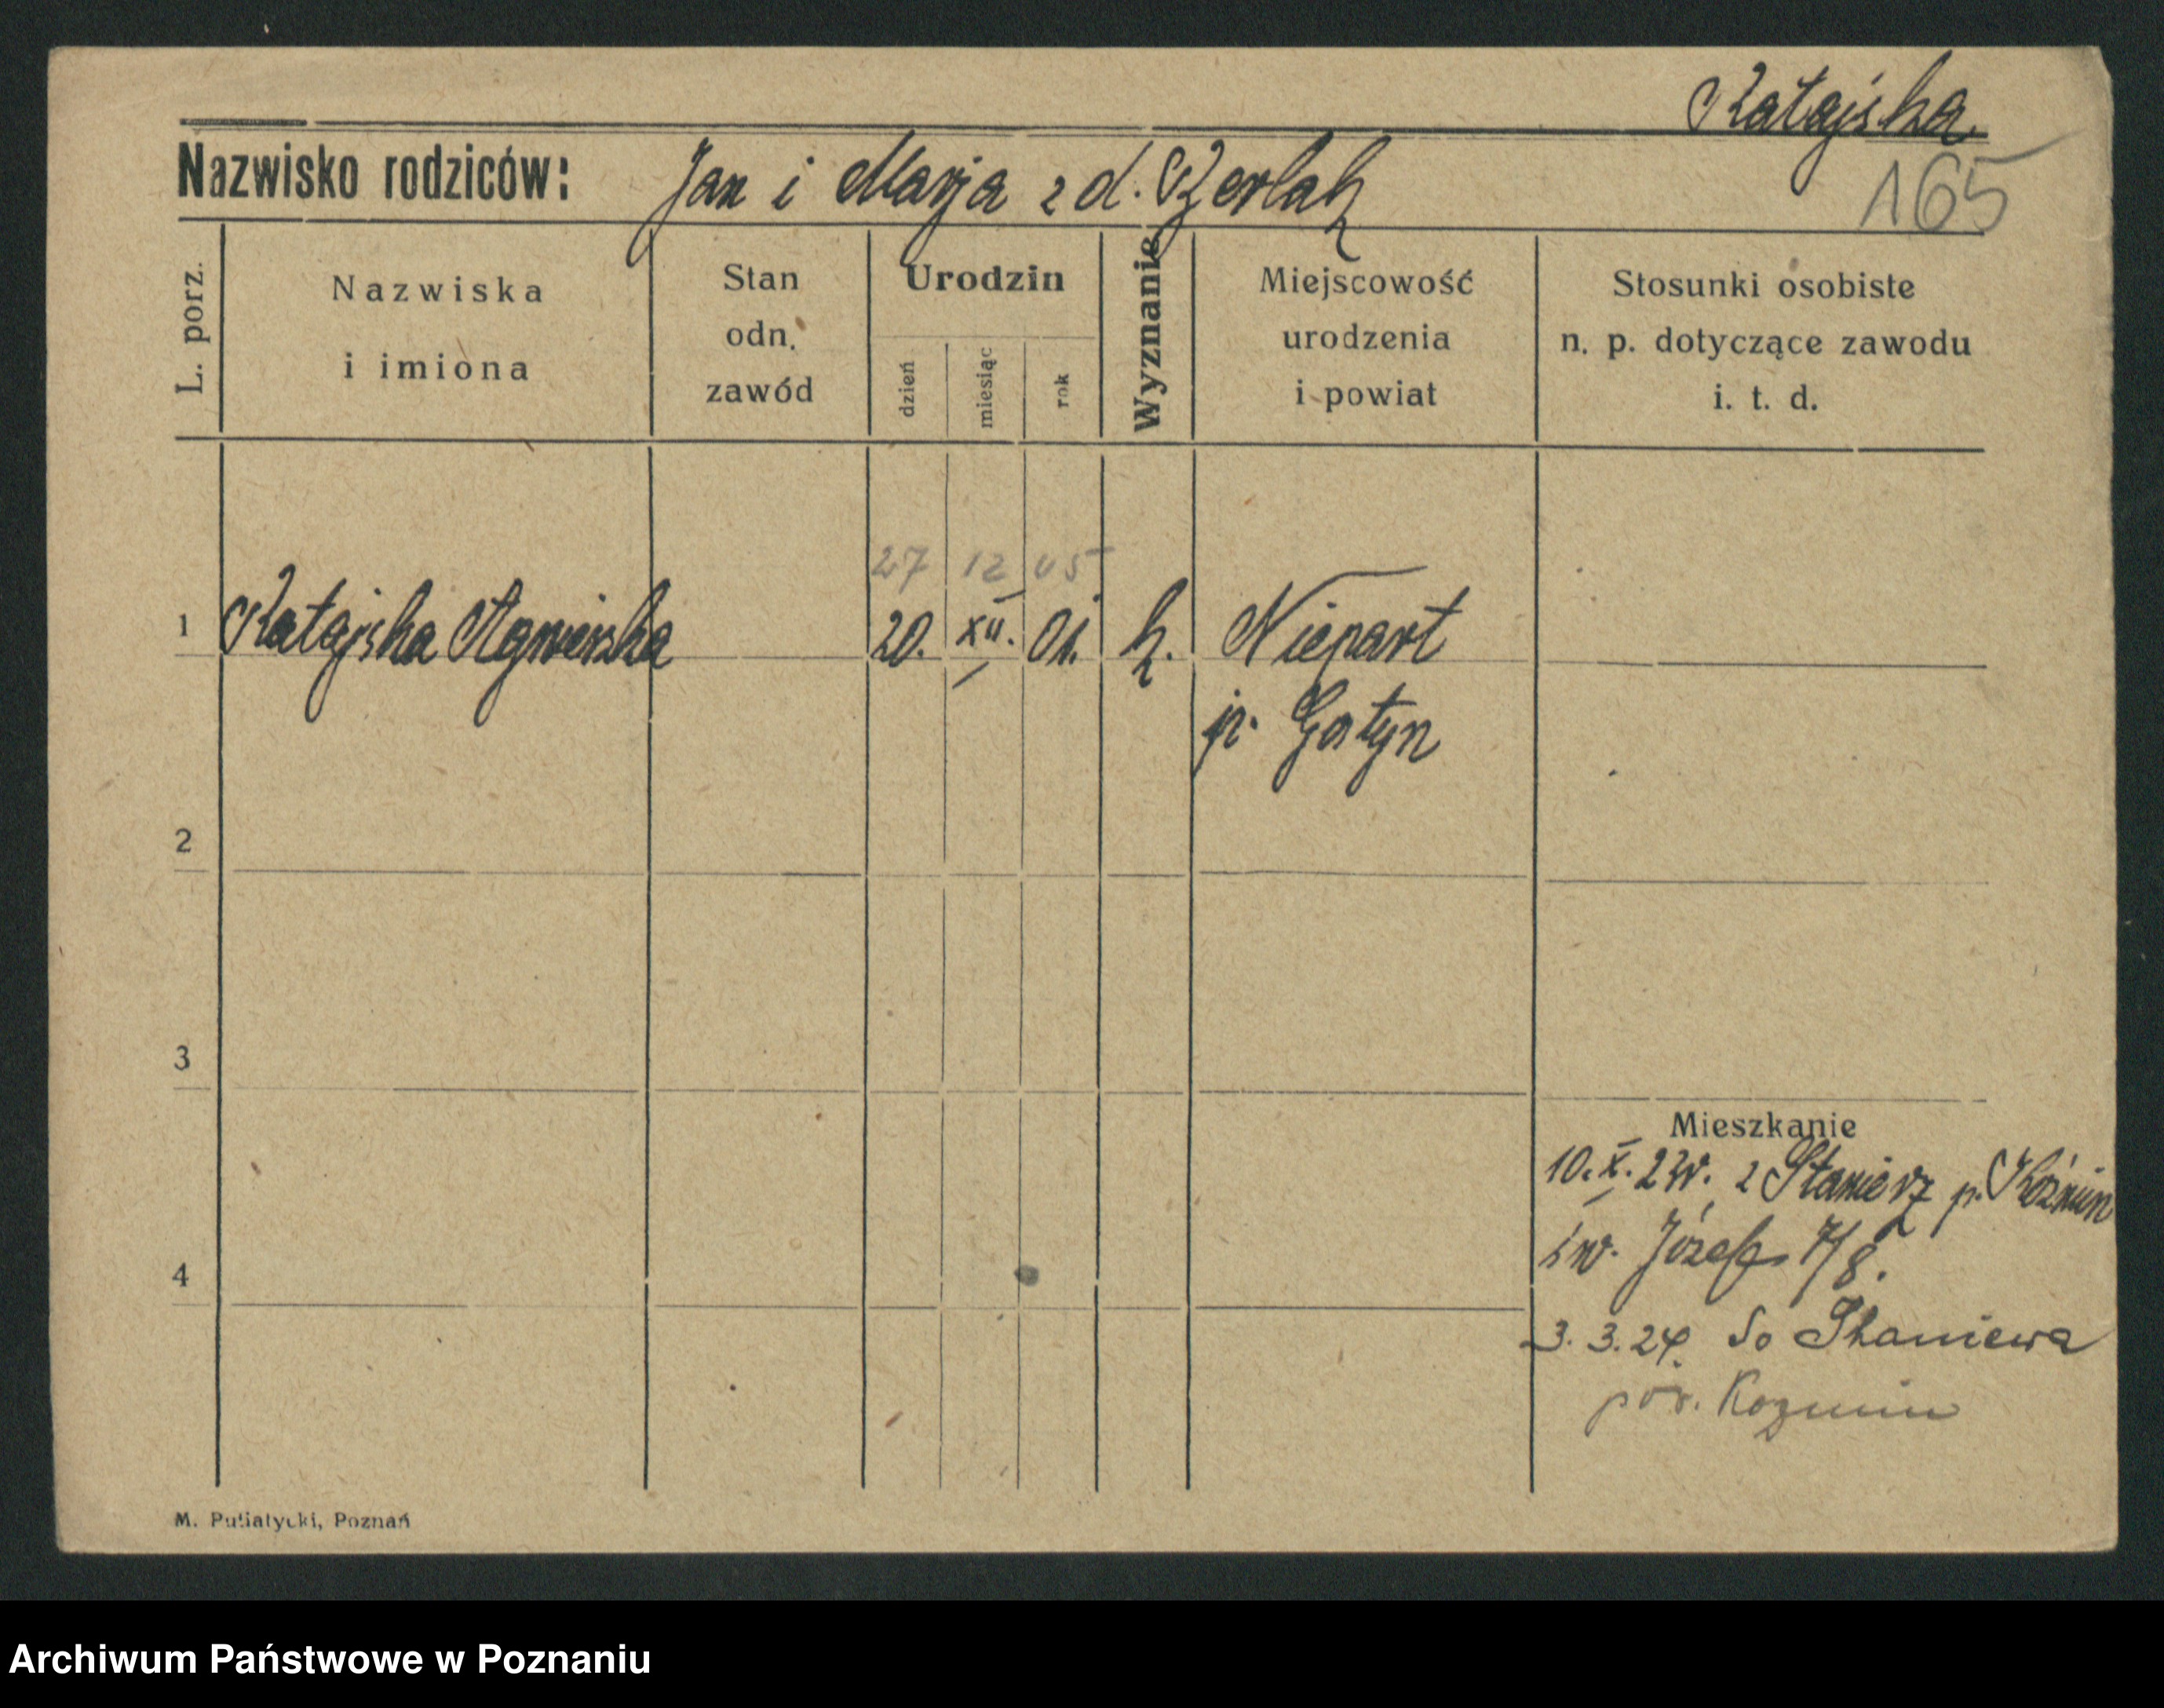 Ratajska
Nazwisko rodziców: Jan i Marja z d.
165
L. porz.
Nazwiska
i imiona
Stan
odn.
zawód
Urodzin
dzień
miesiąc
rok
Wyznanie
Miejscowość
urodzenia
i powiat
Stosunki osobiste
n. p. dotyczące zawodu
i. t. d.
27 12 05
1 Ratajska Agnieszka 20. XII. 01. k. Niepart
p. Gostyn
2
3
Mieszkanie
10. X. 23 r. z p. Koźmin
św. Józefa 7/8.
4
3. 3. 24. do
pow. Kozmin
M. Putiatycki, Poznań
Archiwum Państwowe w Poznaniu